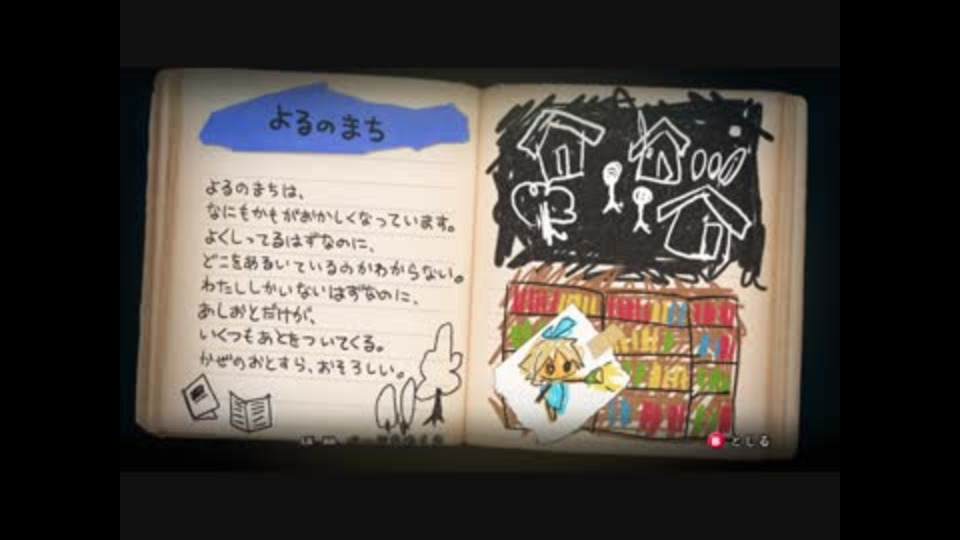 よるのまち
よるのまちは、
なにもかもがおかしくなっています。
よくしってるはずなのに、
どこをあるいているのかわからない。
わたししかいないはずなのに、
あしおとだけが、
いくつもあとをついてくる。
かぜのおとすら、おそろしい。
B とじる